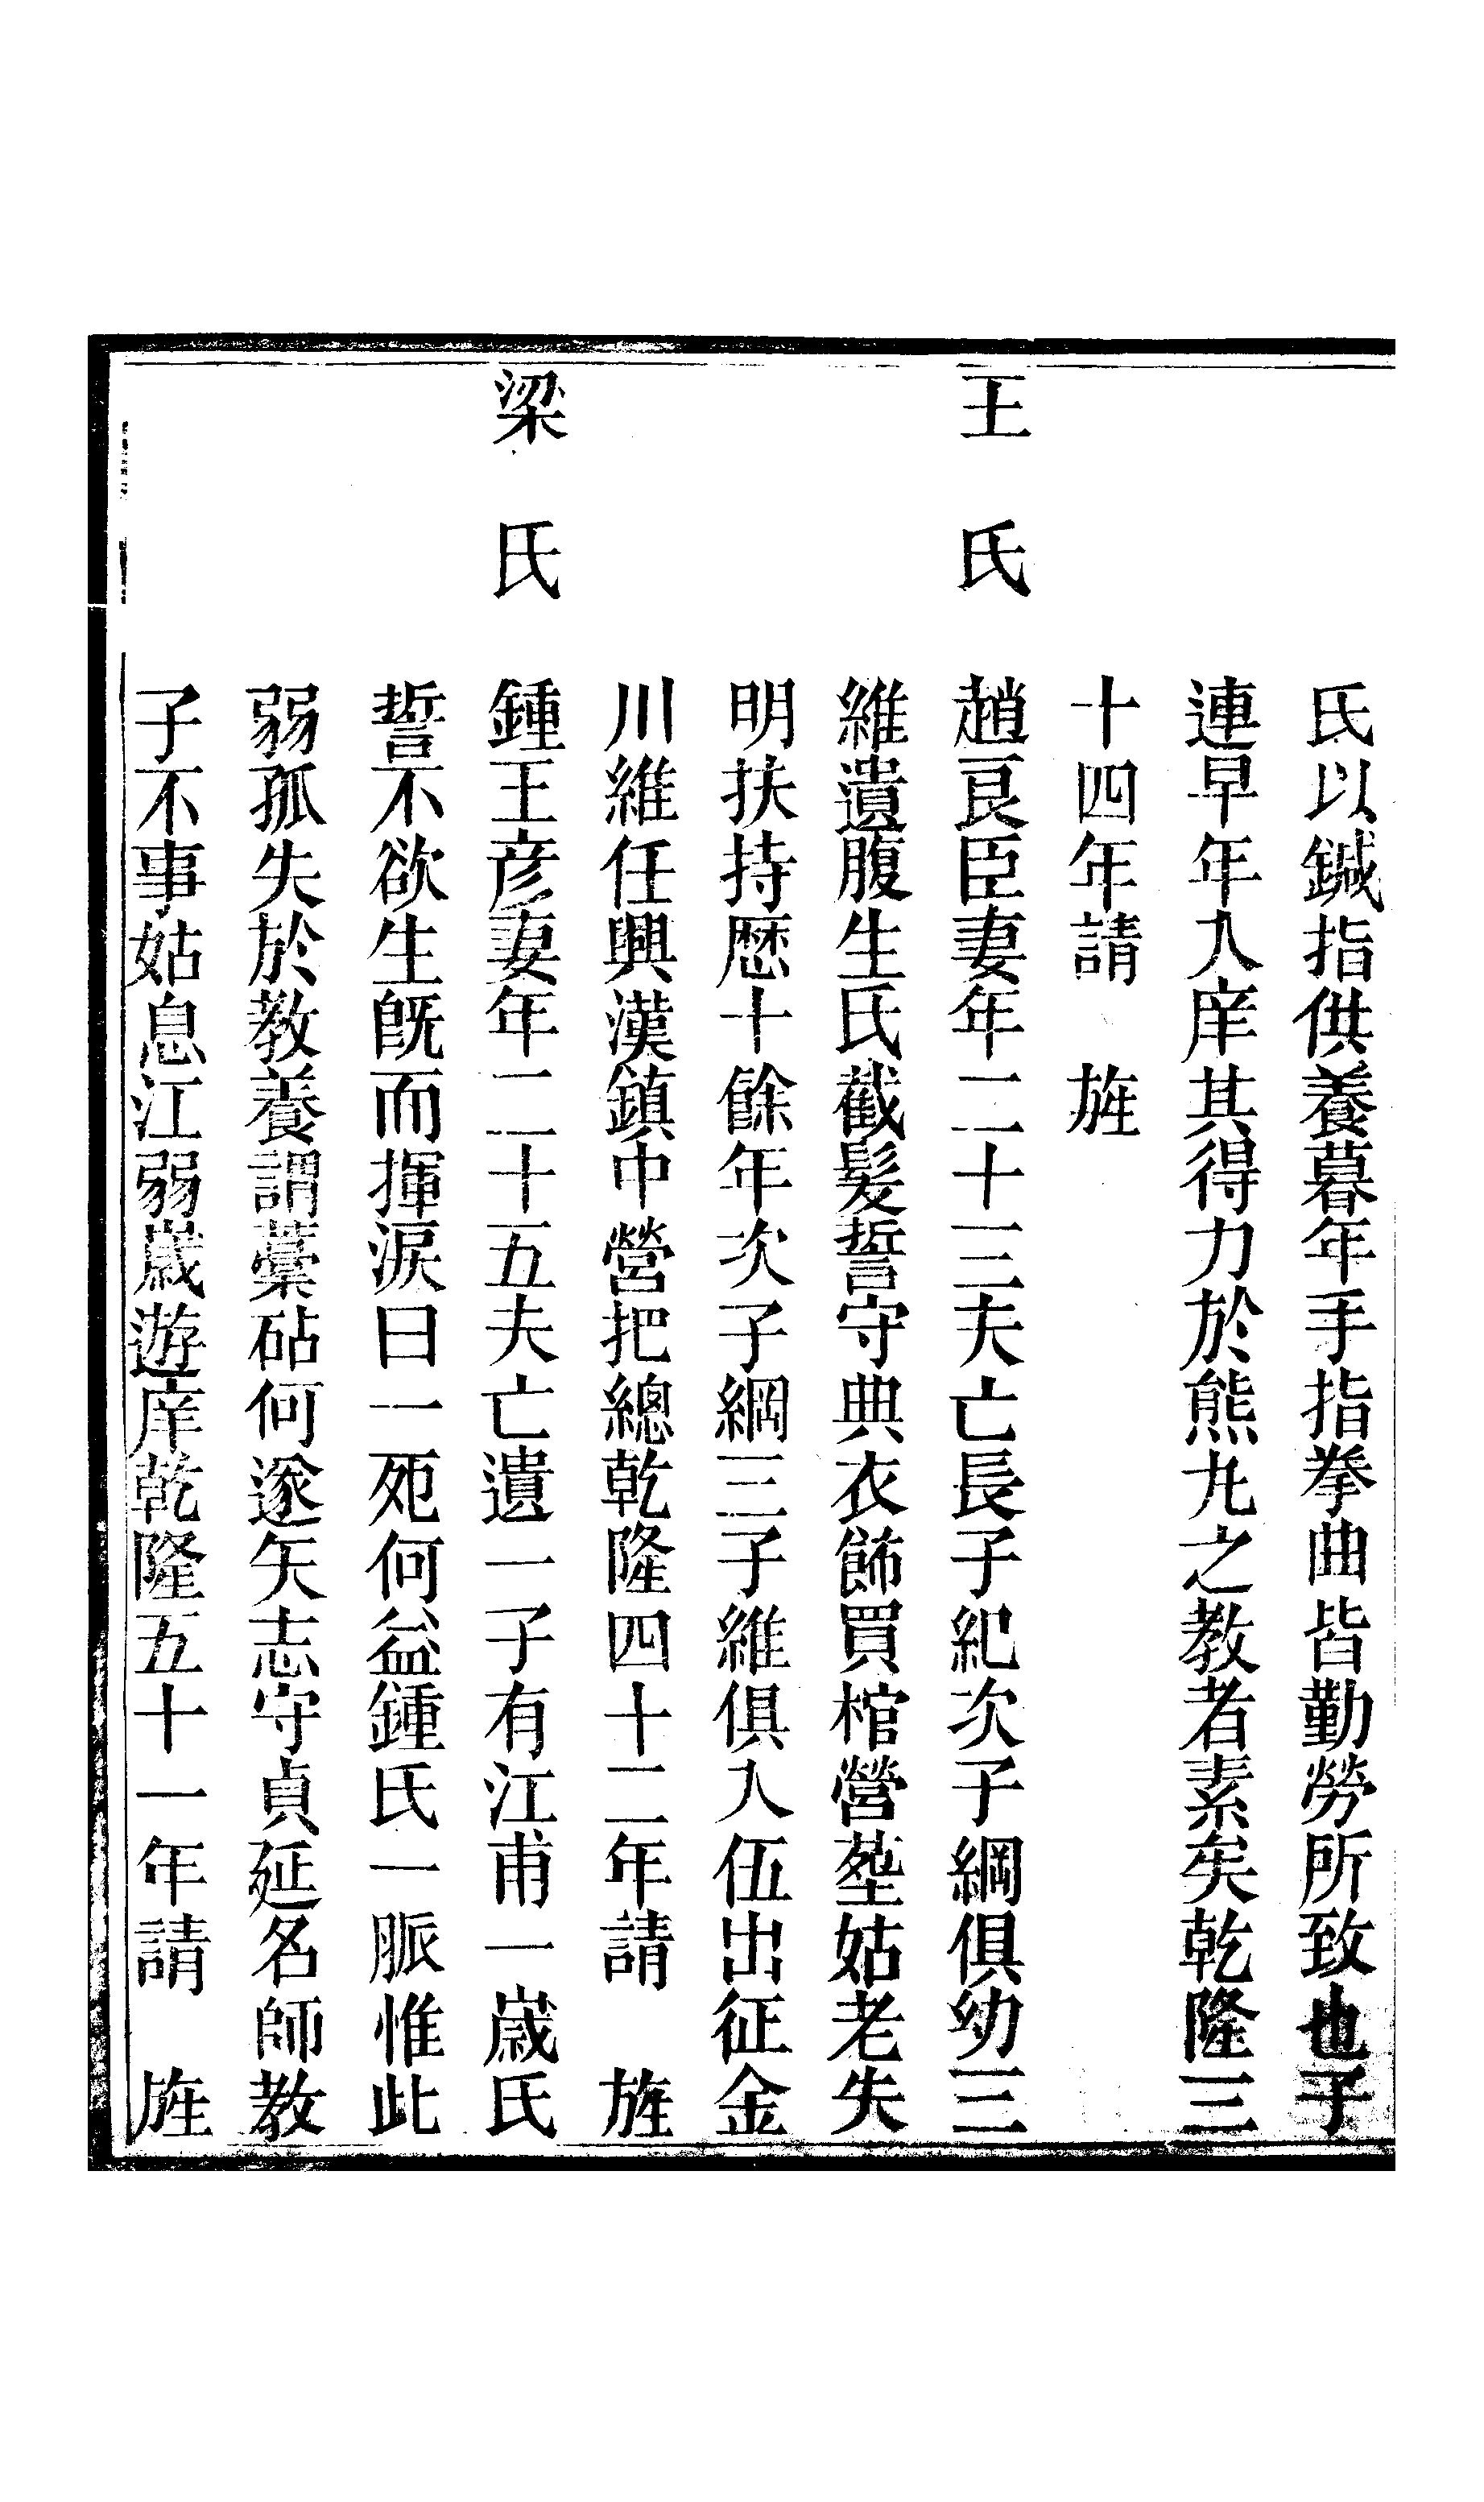 氏以鍼指供養暮年手指拳曲皆勤勞所致也子
連早年入庠其得力於熊丸之教者素矣乾隆三
十四年請　旌
王　氏　趙良臣妻年二十三夫亡長子紀次子綱俱幼三
維遺腹生氏截髮誓守典衣飾買棺營塟姑老失
明扶持歷十餘年次子綱三子維俱入伍出征金
川維任興漢鎮中營把總乾隆四十二年請　旌
梁　氏　鍾王彥妻年二十五夫亡遺一子有江甫一歲氏
誓不欲生旣而揮淚曰一死何益鍾氏一脈惟此
弱孤失於教養謂藁砧何遂矢志守貞延名師教
子不事姑息江弱歲遊庠乾隆五十一年請　旌